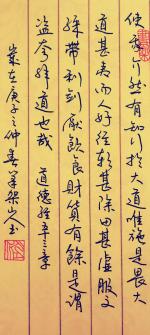 使我介然有知行於大道唯施是畏大
道甚夷而人好徑朝甚除田甚虛服文
綵帶利劍厭飲食財貨有餘是謂
盜夸非道也哉 道德經五十三章
歲在庚子之仲春山人玉